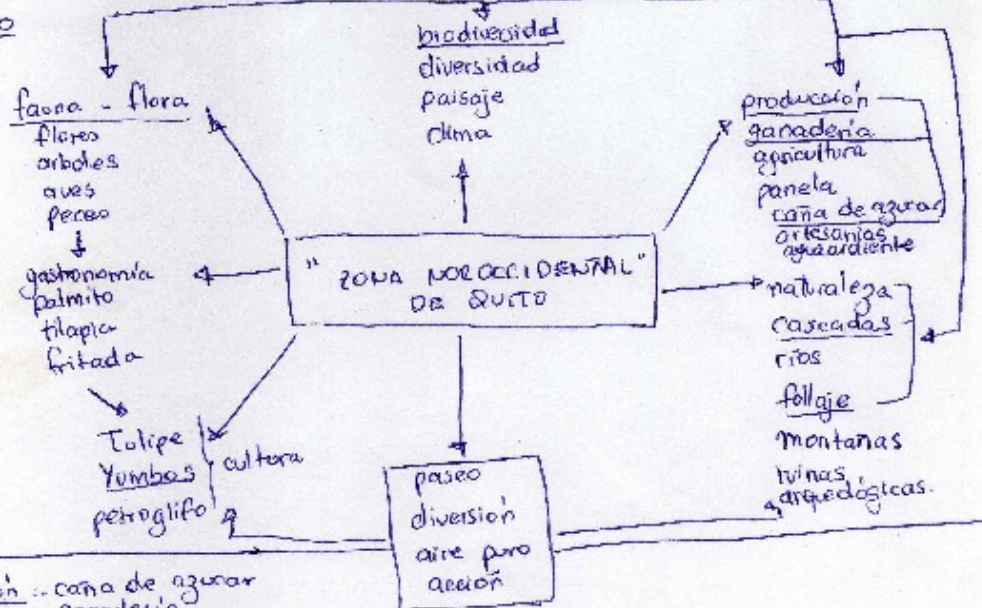 o
biodiversidad
diversidad
paisaje
clima
faona - flora
flores
arboles
aves
peces
gastronomía
palmito
tilapia
fritada
Tulipe
Yumbos
petroglifo
cultura
"ZONA NOROCCIDENTAL"
DE QUITO
paseo
diversión
aire puro
acción
producción
ganadería
agricultura
panela
caña de azucar
artesanías
aguardiente
naturaleza
cascadas
ríos
follaje
montañas
ruinas
arqueológicas.
ón :- caña de azucar
ganadería